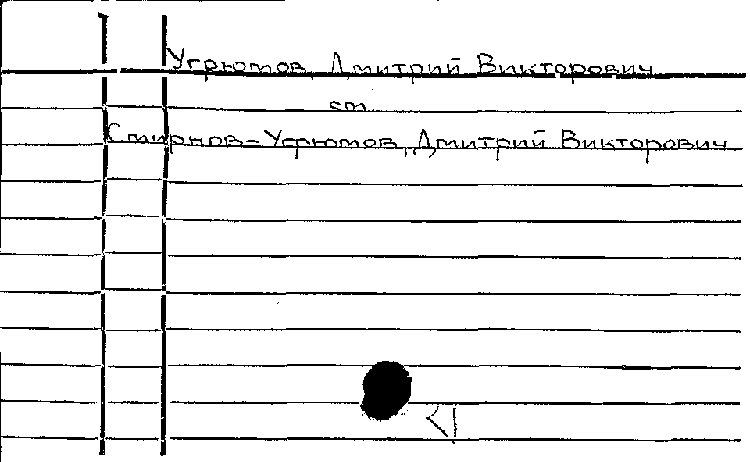 Угрюмов, Дмитрий Викторович
см.
Смирнов-Угрюмов, Дмитрий Викторович